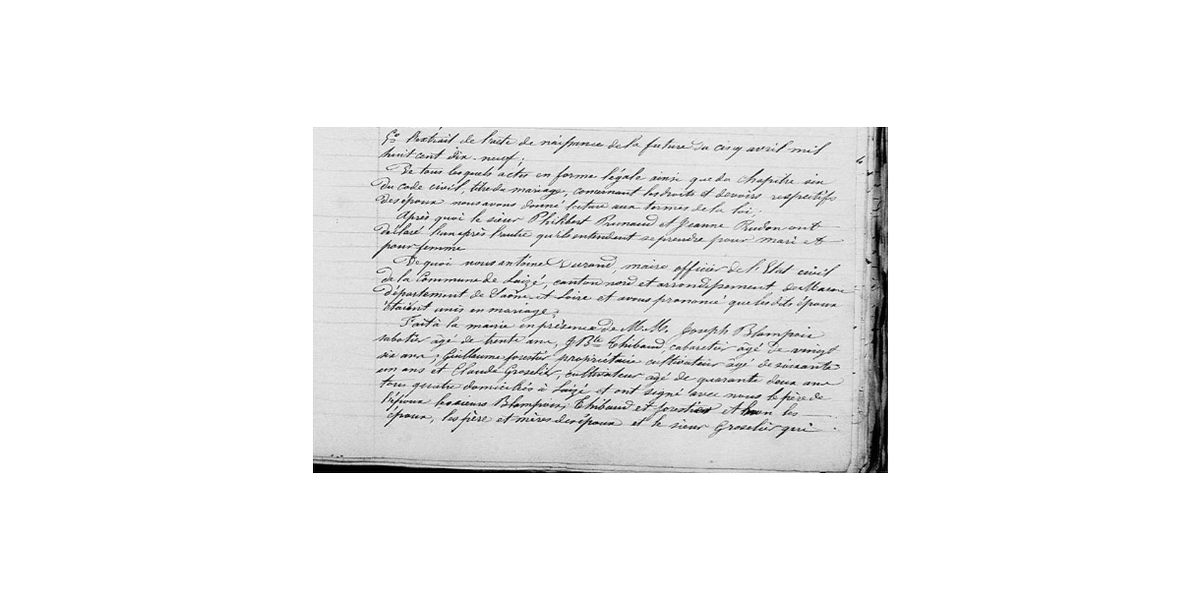 5° l'extrait de l'acte de naissance de la future du cinq avril mil
huit cent dix-neuf.
De tous lesquels actes en forme légale ainsi que du chapitre six
du code civil, titre du mariage, concernant les droits et devoirs respectifs
des époux nous avons donné lecture aux termes de la loi.
Après quoi le sieur Philibert et Jeanne Pudon ont
déclaré l'un après l'autre qu'ils entendent se prendre pour mari et
pour femme
De quoi nous antoine Durand, maire officier de l'Etat civil
de la Commune de Laizé, canton nord et arrondissement de Macon
département de Saône et Loire et avons prononcé que les dits époux
étaient unis en mariage.
Fait à la mairie en présence de M.M. Joseph Blampoix
sabotier âgé de trente ans, J Bte Thibaud, cabaretier âgé de vingt
six ans, Guillaume forestier propriétaire cultivateur âgé de soixante
un ans et Claude Groselier, cultivateur âgé de quarante deux ans
tous quatre domiciliés à Laizé et ont signé avec nous le père de
l'époux les sieurs Blampoix, Thibaud et forestier et non les
époux, les père et mères des époux et le sieur Groselier qui